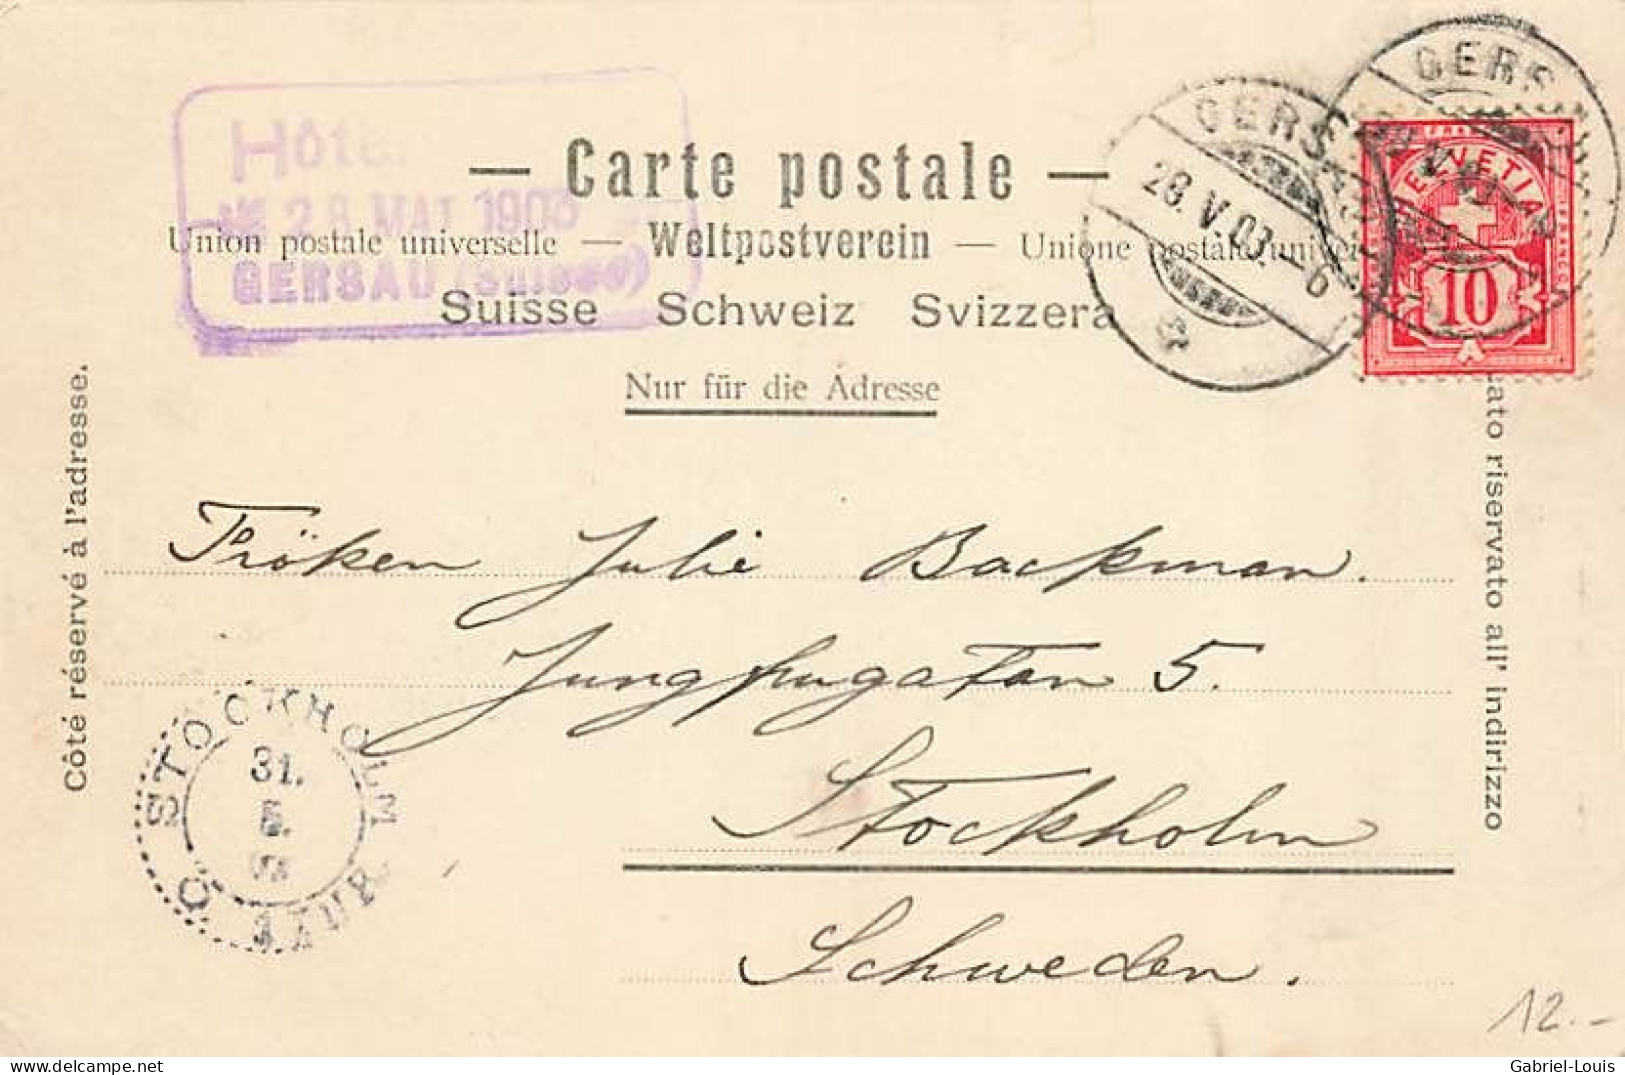 Hôtel
28 MAI 1903
GERSAU (Suisse)
— Carte postale —
Union postale universelle — Weltpostverein — Unione postale univer
Suisse Schweiz Svizzera
Nur für die Adresse
GERSAU
28.V.03.–6
GERS
FRANCO
HELVETIA
10
Côté réservé à l'adresse.
ato riservato all' indirizzo
Fröken Julie Backman.
Jungfrugatan 5.
Stockholm
Schweden.
STOCKHOLM
31.
5.
Ö
1 TUR
12.-
delcampe.net
Gabriel-Louis